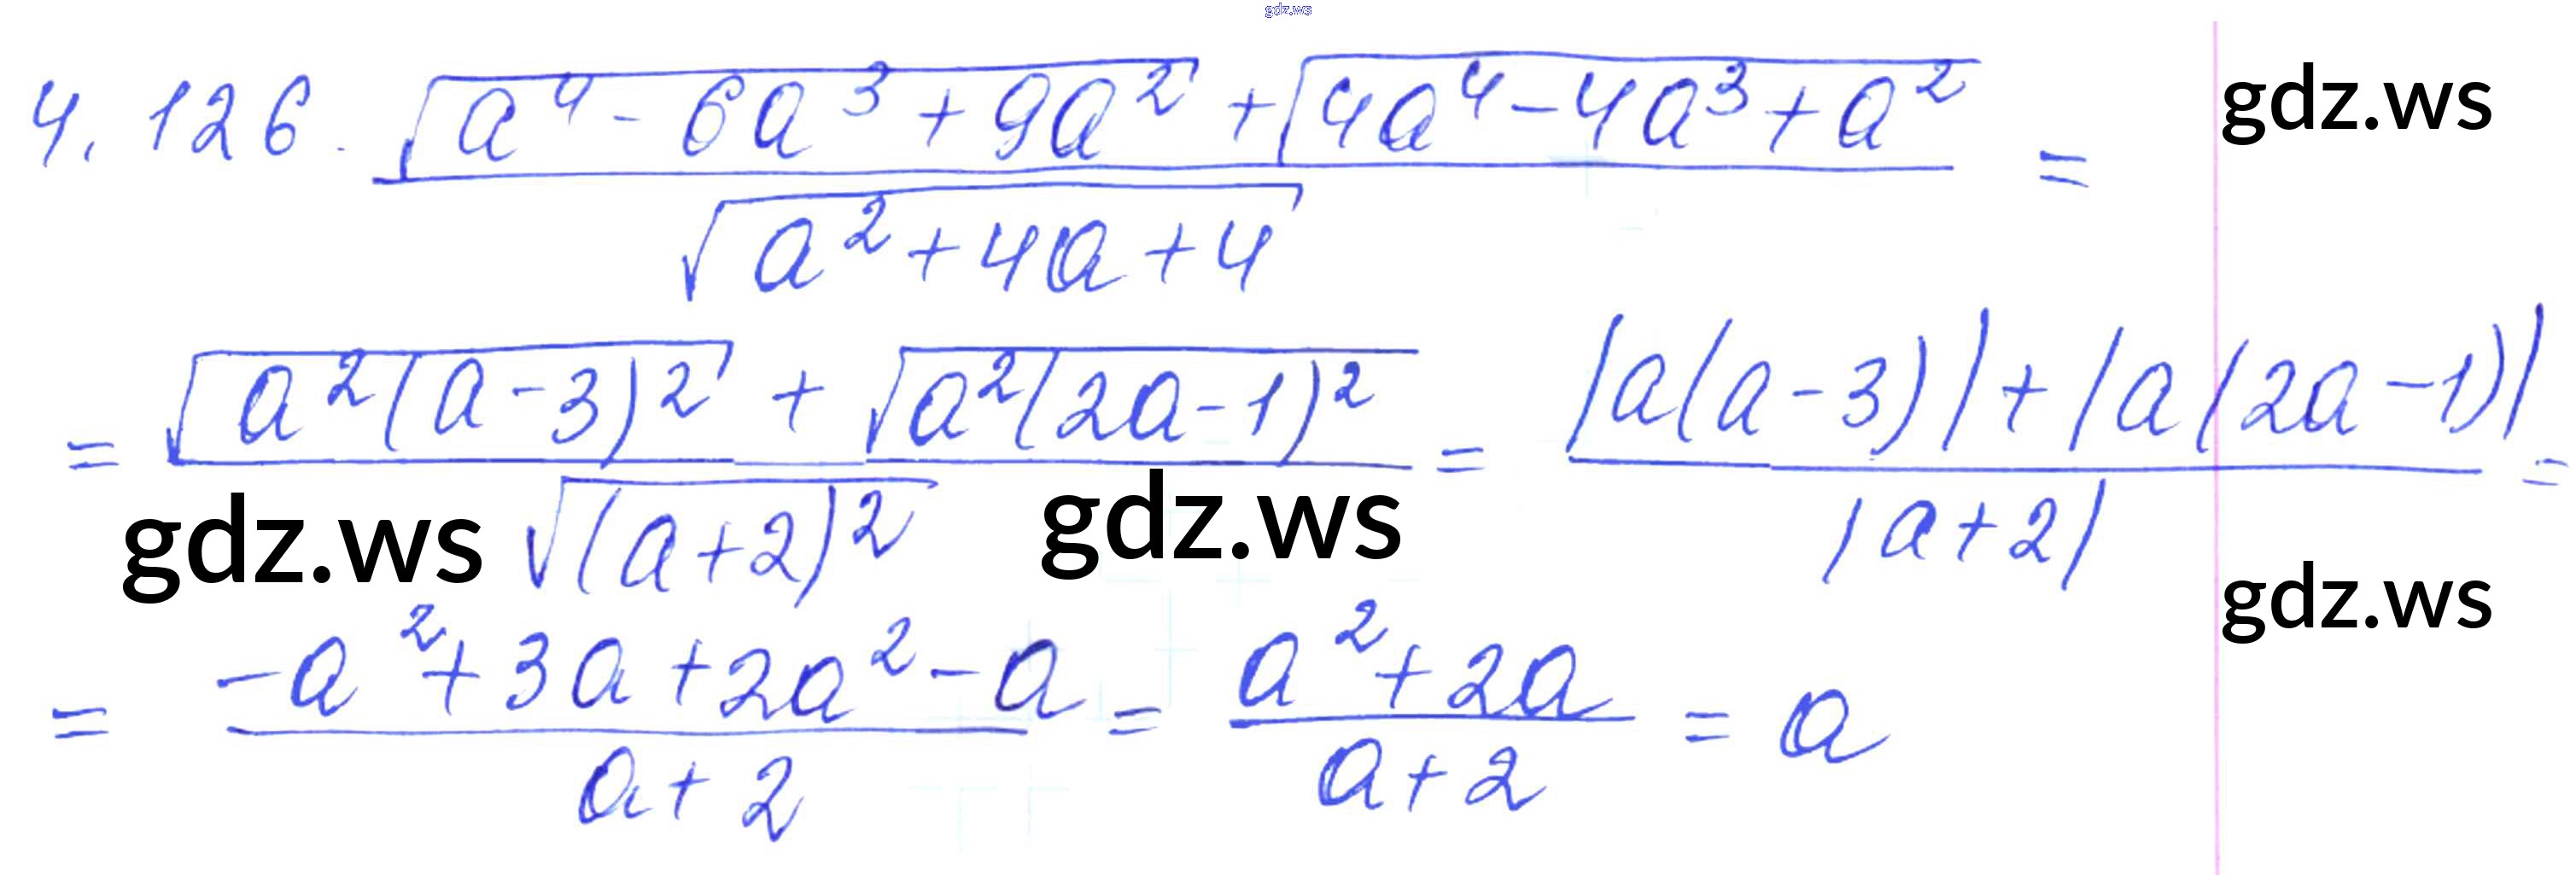 gdz.ws
4.126. \frac{\sqrt{a^4 - 6a^3 + 9a^2} + \sqrt{4a^4 - 4a^3 + a^2}}{\sqrt{a^2 + 4a + 4}} =
gdz.ws
= \frac{\sqrt{a^2(a-3)^2} + \sqrt{a^2(2a-1)^2}}{\sqrt{(a+2)^2}} = \frac{|a(a-3)| + |a(2a-1)|}{|a+2|} =
gdz.ws gdz.ws gdz.ws
= \frac{-a^2 + 3a + 2a^2 - a}{a+2} = \frac{a^2 + 2a}{a+2} = a